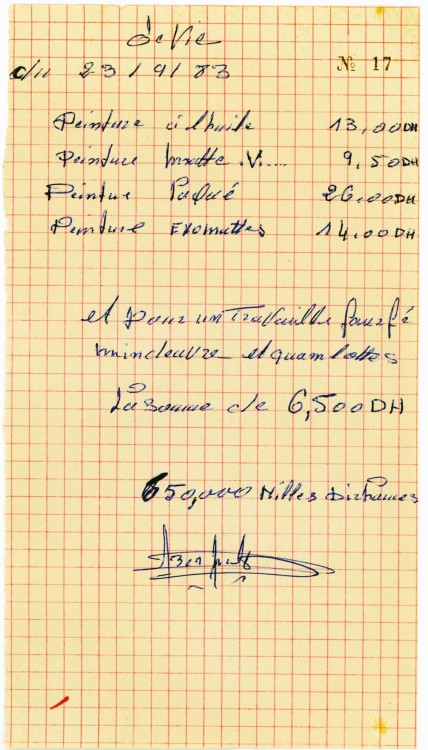 deVie
№ 17
du 23/9/83
Peinture à l'huile 13,00DH
Peinture matte .V..... 9,50DH
Peinture Paqué 26,00DH
Peinture Exomattes 14,00DH
et pour un Travaille
mindeuvre et quam
La somme de 6,500DH
650,000 Milles Dirhames